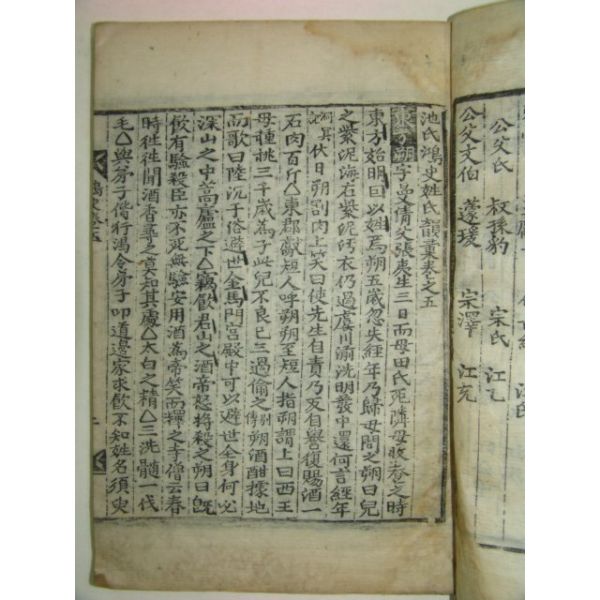 公父氏 叔孫豹 宗氏 江乙
公父文伯 蘧瑗 宗澤 江充
池氏鴻史姓氏韻彙卷之五
東方朔字曼倩父張夷生三日而母田氏死隣母收養之時
東方始明因以姓焉朔五歲忽失經年乃歸母問之朔曰兒
之紫泥海有紫泥汚衣仍過虞川湔洗朝發中還何言經年
洞冥記伏日朔割肉上笑曰使先生自責乃反自譽復賜酒一
石肉百斤△東郡獻短人呼朔朔至短人指朔謂上曰西王
母種桃三千歲爲子此兒不良已三過偷之朔酒酣據地
而歌曰陸沉于俗避世金馬門宮殿中可以避世全身何必
深山之中蒿廬之下△竊飮君山之酒帝怒將殺之朔曰旣
飮有驗殺臣亦不死無驗安用酒爲帝笑而釋之李僧云春
時往往聞酒香尋之莫知其處△太白之精△三洗髓一代
毛△與弟子偕行渴令弟子叩道邊家求飮不知姓名須臾
鴻史卷五